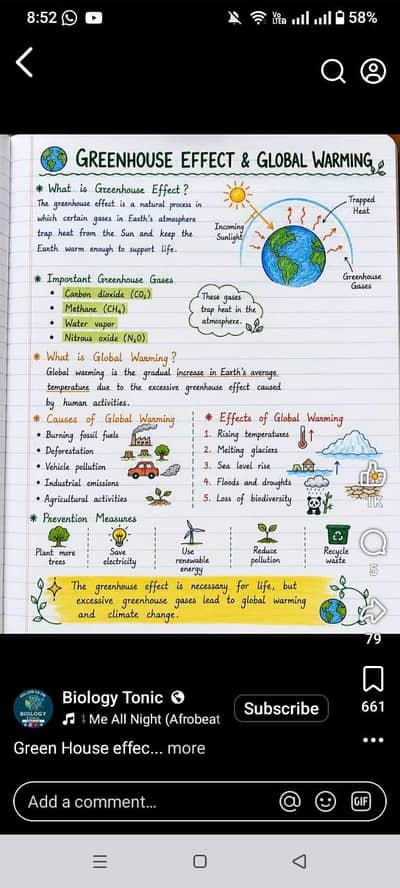 8:52
Vo
LTE
58%
GREENHOUSE EFFECT & GLOBAL WARMING
* What is Greenhouse Effect?
The greenhouse effect is a natural process in
which certain gases in Earth's atmosphere
trap heat from the Sun and keep the
Earth warm enough to support life.
Incoming
Sunlight
Trapped
Heat
Greenhouse
Gases
* Important Greenhouse Gases
• Carbon dioxide (CO₂)
• Methane (CH₄)
• Water vapor
• Nitrous oxide (N₂O)
These gases
trap heat in the
atmosphere.
* What is Global Warming?
Global warming is the gradual increase in Earth's average
temperature due to the excessive greenhouse effect caused
by human activities.
* Causes of Global Warming
• Burning fossil fuels
• Deforestation
• Vehicle pollution
• Industrial emissions
• Agricultural activities
* Effects of Global Warming
1. Rising temperatures
2. Melting glaciers
3. Sea level rise
4. Floods and droughts
5. Loss of biodiversity
* Prevention Measures
Plant more
trees
Save
electricity
Use
renewable
energy
Reduce
pollution
Recycle
waste
The greenhouse effect is necessary for life, but
excessive greenhouse gases lead to global warming
and climate change.
1K
5
79
661
BIOLOGY
Biology Tonic
Me All Night (Afrobeat
Subscribe
Green House effec... more
Add a comment...
GIF